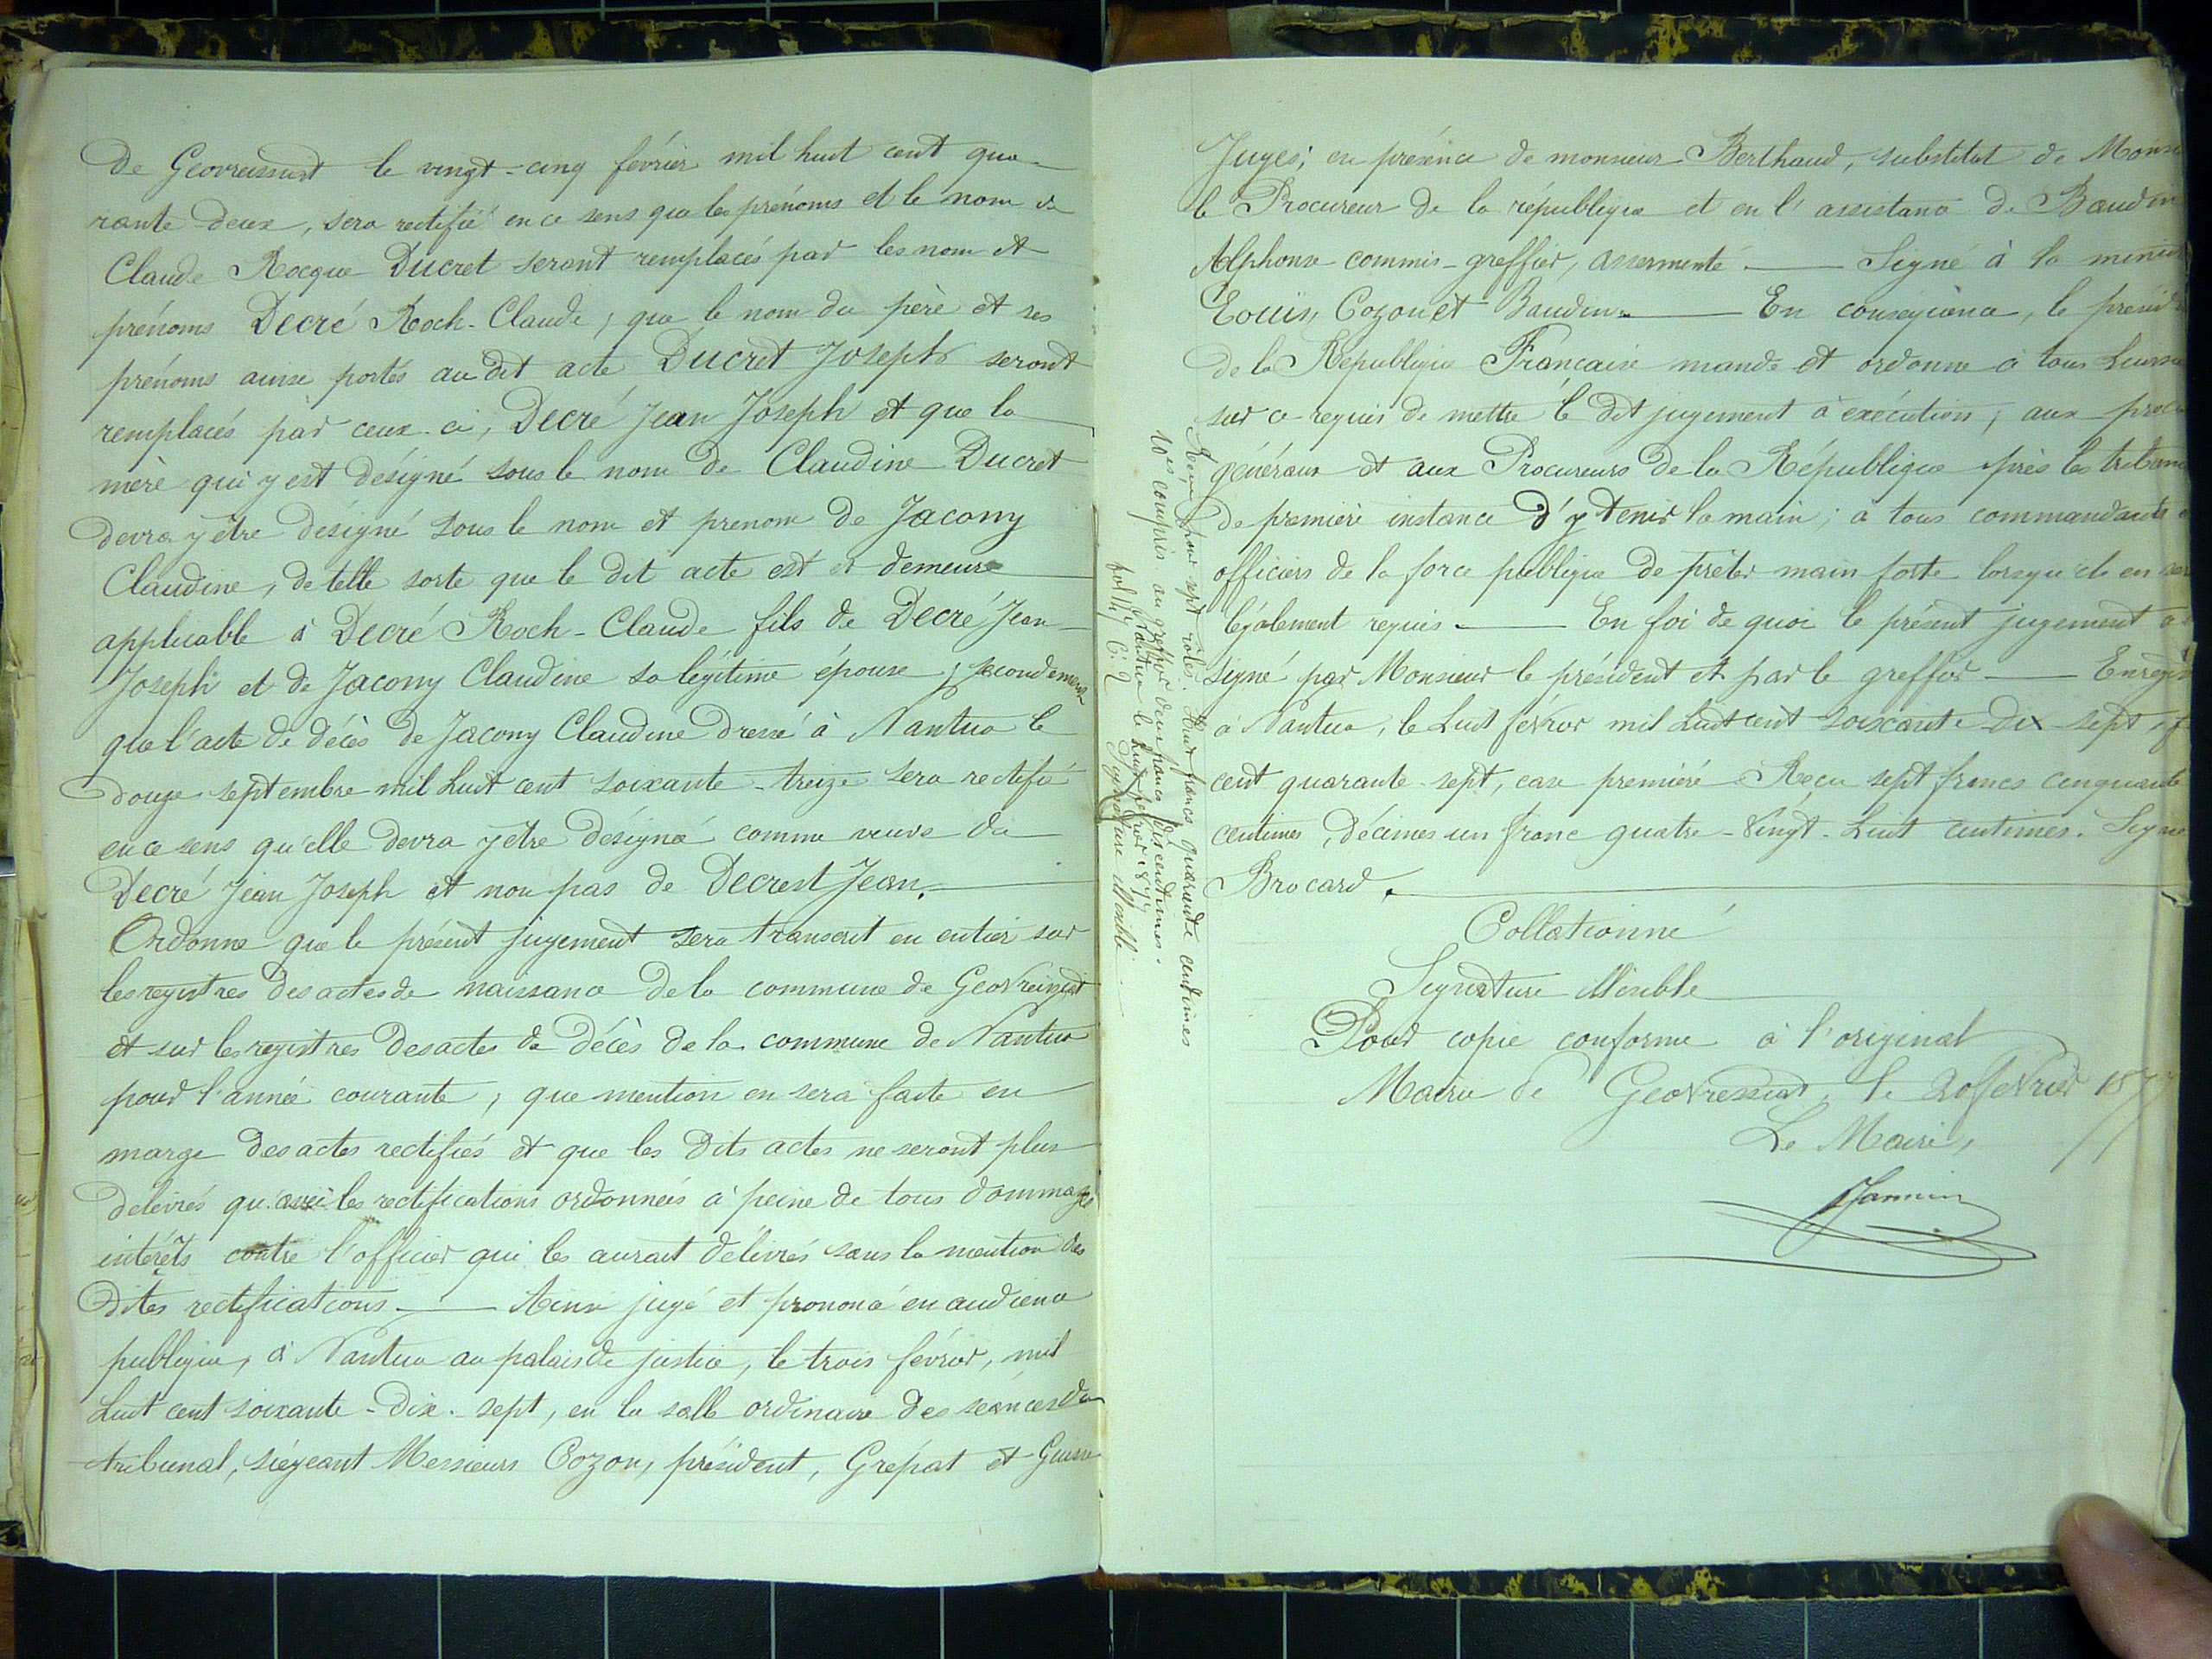 de Geovreissiat le vingt-cinq février mil huit cent qua-
rante-deux, sera rectifié en ce sens que les prénoms et le nom de
Claude Rocque Ducret seront remplacés par les nom et
prénoms Decré Roch-Claude; que le nom du père et ses
prénoms aussi portés au dit acte Ducret Joseph seront
remplacés par ceux-ci, Decré Jean Joseph et que la
mère qui y est désigné sous le nom de Claudine Ducret
devra y être désigné sous le nom et prenom de Jacony
Claudine, de telle sorte que le dit acte est et demeure
applicable à Decré Roch-Claude fils de Decré Jean
Joseph et de Jacony Claudine sa légitime épouse; secondement
que l'acte de décès de Jacony Claudine dressé à Nantua le
douze septembre mil huit cent soixante-treize sera rectifié
en ce sens qu'elle devra y être désignée comme veuve de
Decré Jean Joseph et non pas de Decrest Jean.
Ordonne que le présent jugement sera transcrit en entier sur
les registres des actes de naissance de la commune de Geovreissiat
et sur les registres des actes de décès de la commune de Nantua
pour l'année courante; que mention en sera faite en
marge des actes rectifiés et que les dits actes ne seront plus
délivrés qu'avec les rectifications ordonnées à peine de tous dommages
intérêts contre l'officier qui les aurait délivrés sans la mention des
dites rectifications. — Ainsi jugé et prononcé en audience
publique, à Nantua au palais de justice, le trois février, mil
huit cent soixante-dix-sept, en la salle ordinaire des séances du
tribunal, siégeant Messieurs Cozon, président, Grépat et
Juges; en présence de monsieur Berthaud, substitut de Monsi
le Procureur de la république et en l'assistance de Baudin
Alphonse commis-greffier, assermenté. — Signé à la minut
Cozon et Baudin. — En conséquence, le présid
de la République Française mande et ordonne à tous huissi
sur ce requis de mettre le dit jugement à exécution; aux proc
généraux et aux Procureurs de la République près les tribuna
de première instance d'y tenir la main; à tous commandants e
officiers de la force publique de prêter main forte lorsqu'ils en ser
légalement requis. — En foi de quoi le présent jugement a
signé par Monsieur le président et par le greffier — Enregist
à Nantua, le huit février mil huit cent soixante dix sept, f
cent quarante-sept, case première Reçu sept francs cinquante
centimes, décimes un franc quatre-vingt-huit centimes. Signé
Brocard.
Collationné
Signature illisible
Pour copie conforme à l'original
Mairie de Geovressiat, le 20 février 1877
Le Maire,
Reçu pour sept rôles. Huit francs quarante centimes
compris au greffier deux francs dix centimes.
Nantua le huit février 1877
Signature illisible